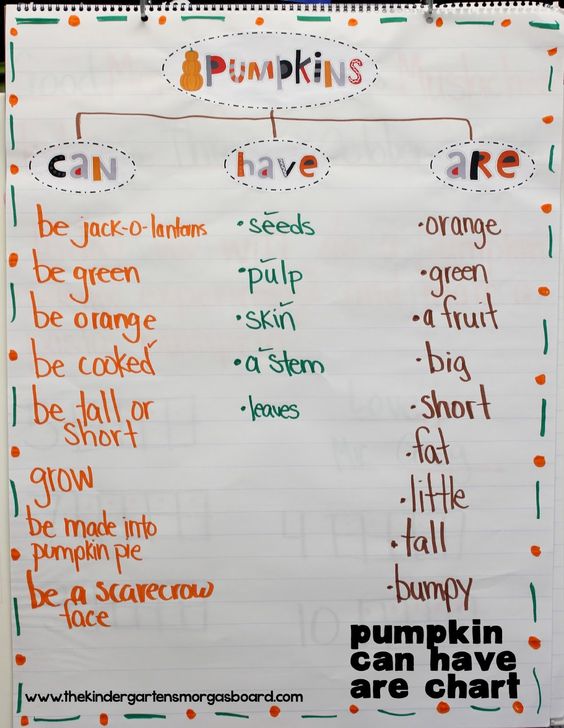 Pumpkins
can
have
are
be jack-o-lanterns
be green
be orange
be cooked
be tall or
short
grow
be made into
pumpkin pie
be a scarecrow
face
• seeds
• pulp
• skin
• a stem
• leaves
• orange
• green
• a fruit
• big
• short
• fat
• little
• tall
• bumpy
pumpkin
can have
are chart
www.thekindergartensmorgasboard.com